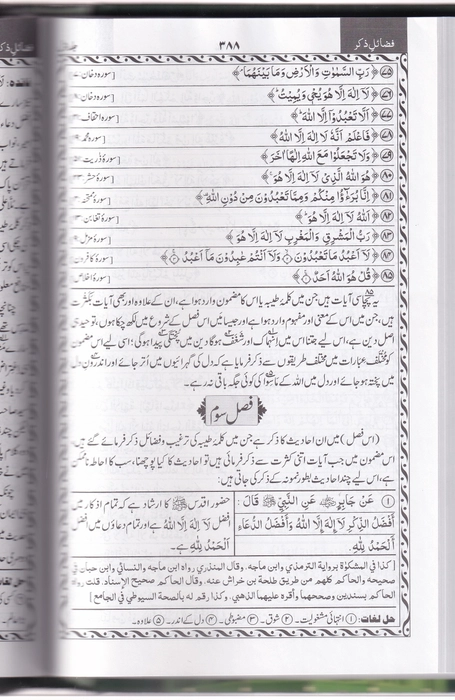 فضائلِ ذکر
۳۸۸
﴿۷۵﴾ رَبُّ السَّمٰوٰتِ وَالْاَرْضِ وَمَا بَيْنَهُمَا ۘ [سورۂ دخان
﴿۷۶﴾ لَآ اِلٰهَ اِلَّا هُوَ يُحْيٖ وَيُمِيْتُ ؕ [سورۂ دخان
﴿۷۷﴾ اَلَّا تَعْبُدُوْٓا اِلَّا اللّٰهَ ؕ [سورۂ احقاف
﴿۷۸﴾ فَاعْلَمْ اَنَّهٗ لَآ اِلٰهَ اِلَّا اللّٰهُ [سورۂ محمد
﴿۷۹﴾ وَلَا تَجْعَلُوْا مَعَ اللّٰهِ اِلٰهًا اٰخَرَ [سورۂ ذٰریٰت
﴿۸۰﴾ هُوَ اللّٰهُ الَّذِيْ لَآ اِلٰهَ اِلَّا هُوَ ۚ [سورۂ حشر
﴿۸۱﴾ اِنَّا بُرَءٰٓؤُا مِنْكُمْ وَمِمَّا تَعْبُدُوْنَ مِنْ دُوْنِ اللّٰهِ [سورۂ ممتحنہ
﴿۸۲﴾ اَللّٰهُ لَآ اِلٰهَ اِلَّا هُوَ ؕ [سورۂ تغابن
﴿۸۳﴾ رَبُّ الْمَشْرِقِ وَالْمَغْرِبِ لَآ اِلٰهَ اِلَّا هُوَ [سورۂ مزمل
﴿۸۴﴾ لَآ اَعْبُدُ مَا تَعْبُدُوْنَ ۙ وَلَآ اَنْتُمْ عٰبِدُوْنَ مَآ اَعْبُدُ ۚ [سورۂ کافرون
﴿۸۵﴾ قُلْ هُوَ اللّٰهُ اَحَدٌ ۚ [سورۂ اخلاص
یہ پچاسی آیات ہیں جن میں کلمۂ طیبہ یا اس کا مضمون وارد ہوا ہے، ان کے علاوہ اور بھی آیات بکثرت
ہیں، جن میں اس کے معنی اور مفہوم وارد ہوا ہے اور جیسا میں اس فصل کے شروع میں لکھ چکا ہوں، توحید ہی
اصل دین ہے، اس لیے جتنا اس میں انہماک اور شغف ہوگا دین میں پختگی پیدا ہوگی؛ اسی لیے اس مضمون
کو مختلف عبارات میں مختلف طریقوں سے ذکر فرمایا ہے کہ دل کی گہرائیوں میں اُتر جائے اور اندرونِ دل
میں پختہ ہوجائے اور دل میں اللہ کے ماسوا کی کوئی جگہ باقی نہ رہے۔
فصل سوم
(اس فصل) میں ان احادیث کا ذکر ہے جن میں کلمۂ طیبہ کی ترغیب و فضائل ذکر فرمائے گئے ہیں
اس مضمون میں جب آیات اتنی کثرت سے ذکر فرمائی ہیں تو احادیث کا کیا پوچھنا، سب کا احاطہ
ہے، اس لیے چند احادیث بطور نمونہ کے ذکر کی جاتی ہیں:
① عَنْ جَابِرٍ عَنِ النَّبِيِّ ﷺ قَالَ:
أَفْضَلُ الذِّكْرِ لَا إِلٰهَ إِلَّا اللّٰهُ وَأَفْضَلُ الدُّعَاءِ
اَلْحَمْدُ لِلّٰهِ.
حضور اقدس ﷺ کا ارشاد ہے کہ تمام اذکار میں
افضل لَا اِلٰهَ اِلَّا اللّٰهُ ہے اور تمام دعاؤں میں افضل
اَلْحَمْدُ لِلّٰهِ ہے۔
[كذا في المشكوٰة برواية الترمذي وابن ماجه، وقال المنذري رواه ابن ماجه والنسائي وابن حبان في
صحيحه والحاكم كلهم من طريق طلحة بن خراش عنه، وقال الحاكم صحيح الإسناد، قلت رواه
الحاكم بسندين وصححهما وأقره عليهما الذهبي، وكذا رقم له بالصحة السيوطي في الجامع]
حل لغات: ① انتہائی مشغولیت۔ ② شوق۔ ③ مضبوطی۔ ④ دل کے اندر۔ ⑤ علاوہ۔